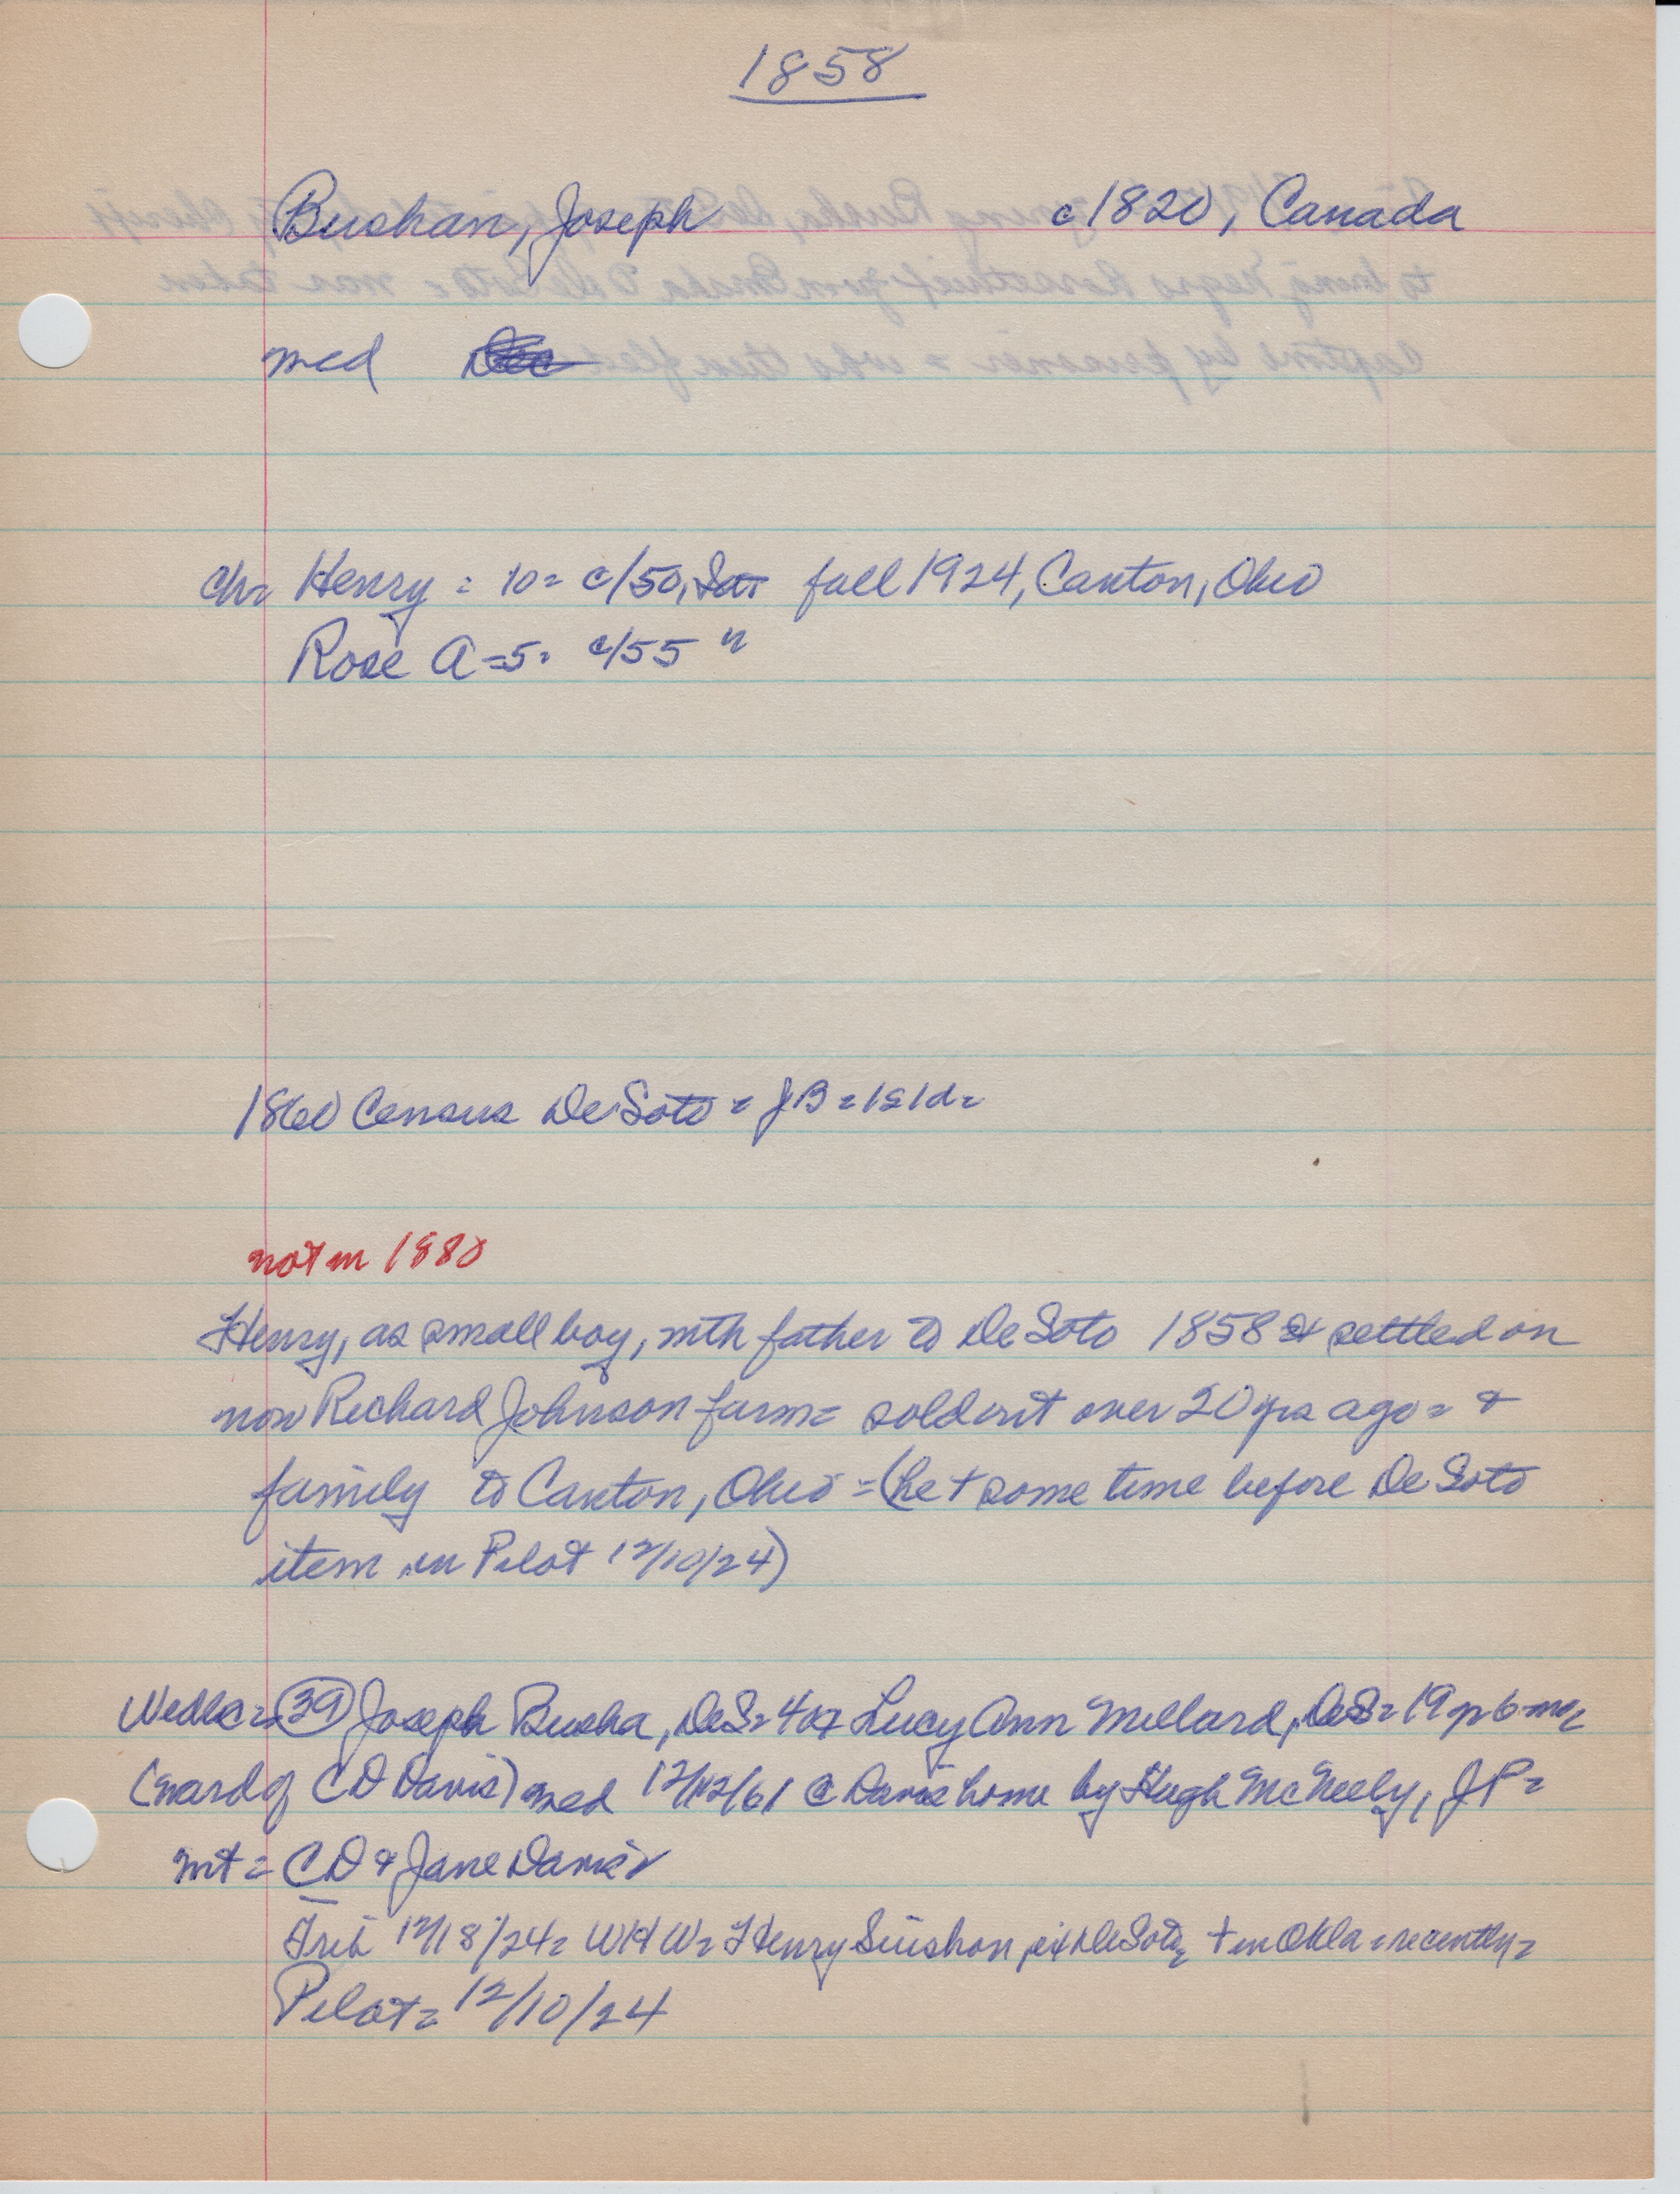 1858
Bushan, Joseph c1820, Canada
med
ch= Henry = 10= c/50, fall 1924, Canton, Ohio
Rose A=5= c/55 "
1860 Census DeSoto = JB = 1s1d=
not in 1880
Henry, as small boy, with father to DeSoto 1858 & settled on
now Richard Johnson farm= sold out over 20 yrs ago= &
family to Canton, Ohio = (he + some time before DeSoto
item in Pilot 12/10/24)
39 Joseph Busha, DeS= 40 & Lucy Ann Millard, DeS= 19 yr 6 mo=
(ward of CD Davis) med 12/12/61 @ Davis home by Hugh McNeely, JP=
wt = CD & Jane Davis
Trib 12/18/24= WHW= Henry ex DeSoto, + in Okla = recently=
Pilot= 12/10/24